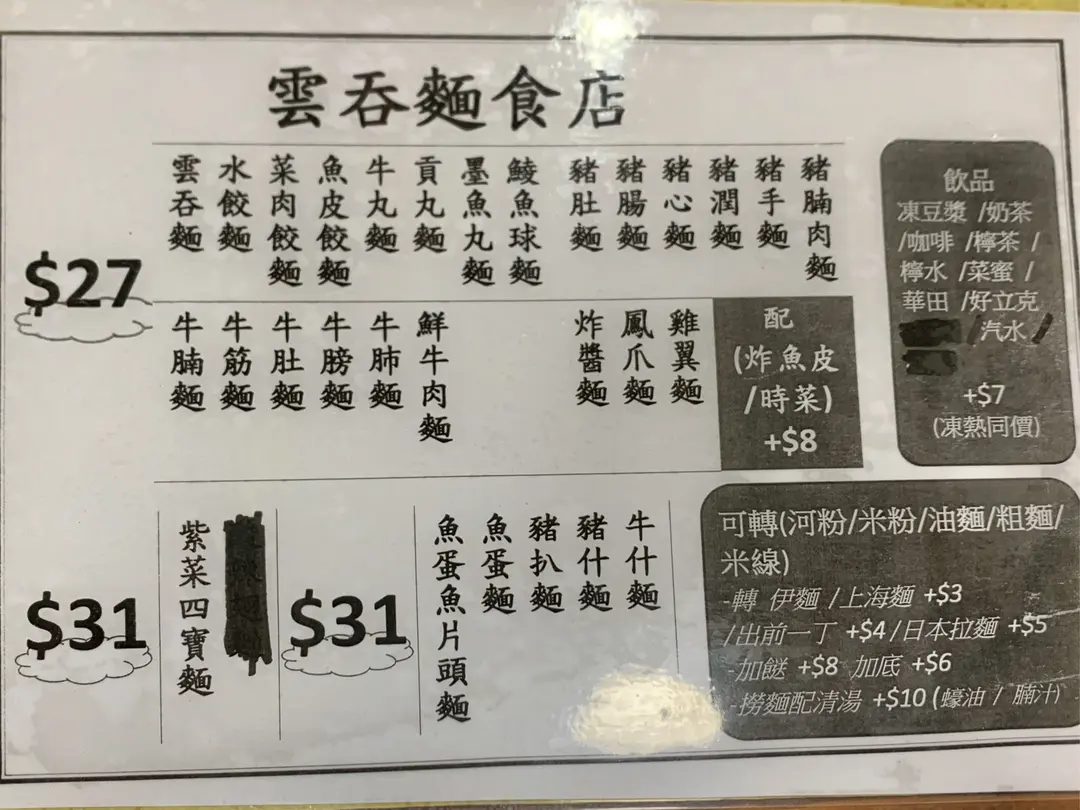 雲吞麵食店
$27
雲吞麵
水餃麵
菜肉餃麵
魚皮餃麵
牛丸麵
貢丸麵
墨魚丸麵
鯪魚球麵
豬肚麵
豬腸麵
豬心麵
豬潤麵
豬手麵
豬腩肉麵
牛腩麵
牛筋麵
牛肚麵
牛膀麵
牛肺麵
鮮牛肉麵
炸醬麵
鳳爪麵
雞翼麵
配
(炸魚皮
/時菜)
+$8
飲品
凍豆漿 /奶茶
/咖啡 /檸茶 /
檸水 /菜蜜 /
華田 /好立克
/汽水/
+$7
(凍熱同價)
$31
紫菜四寶麵
$31
魚蛋魚片頭麵
魚蛋麵
豬扒麵
豬什麵
牛什麵
可轉(河粉/米粉/油麵/粗麵/
米線)
-轉 伊麵 /上海麵 +$3
/出前一丁 +$4/日本拉麵 +$5
-加餸 +$8 加底 +$6
-撈麵配清湯 +$10 (蠔油 / 腩汁)